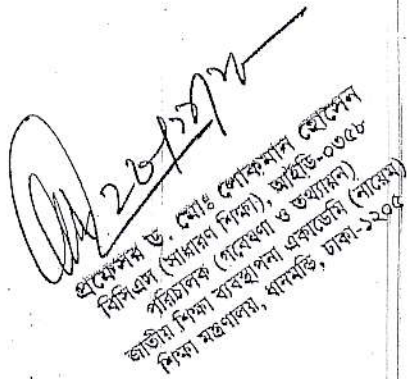 প্রফেসর ড. মোঃ লোকমান হোসেন
বিসিএস (সাধারণ শিক্ষা), আইডি-০৩৫৮
পরিচালক (গবেষণা ও তথ্যায়ন)
জাতীয় শিক্ষা ব্যবস্থাপনা একাডেমি (নায়েম)
শিক্ষা মন্ত্রণালয়, ধানমন্ডি, ঢাকা-১২০৫